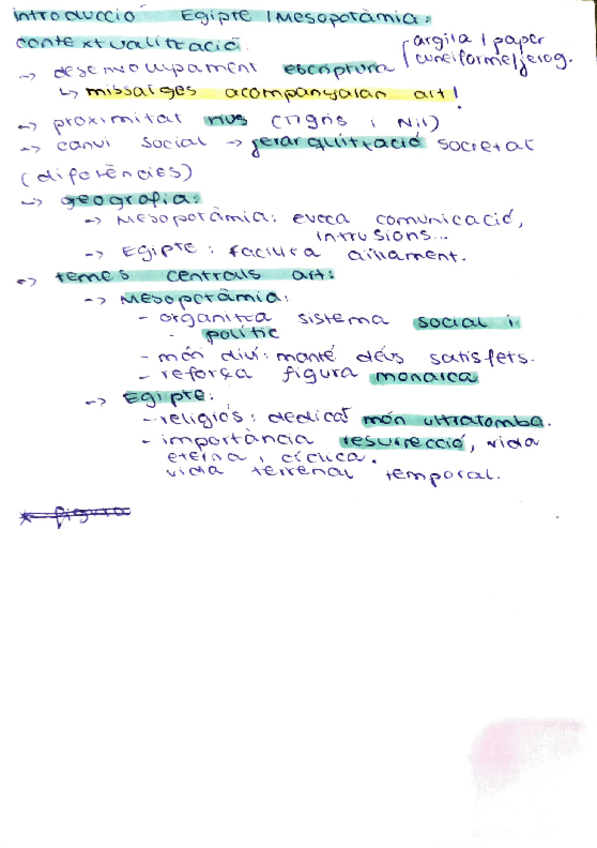 introducció Egipte / Mesopotàmia:
contextualització.
→ desenvolupament escriptura argila / paper
cuneiforme / jerog.
↳ missatges acompanyaran art!
→ proximitat rius (Tigris i Nil)
→ canvi social → jerarquització societat
(diferències)
→ geografia:
→ Mesopotàmia: evoca comunicació,
intrusions...
→ Egipte: facilita aïllament.
→ temes centrals art:
→ Mesopotàmia:
- organitza sistema social i
polític
- món diví: manté déus satisfets.
- reforça figura monarca
→ Egipte:
- religiós: dedicat món ultratomba.
- importància resurrecció, vida
eterna i cíclica.
vida terrenal temporal.
* figura